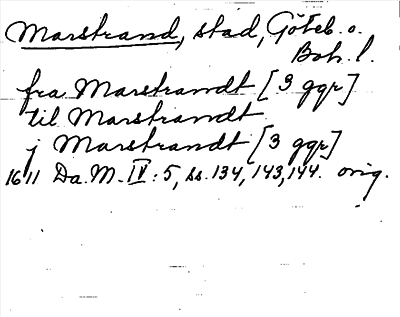 Marstrand, stad, Göteb. o.
Boh. l.
fra Marstrandt [3 ggr]
til Marstrandt
j Marstrandt [3 ggr]
1611 Da. M. IV: 5, ss. 134, 143, 144. orig.